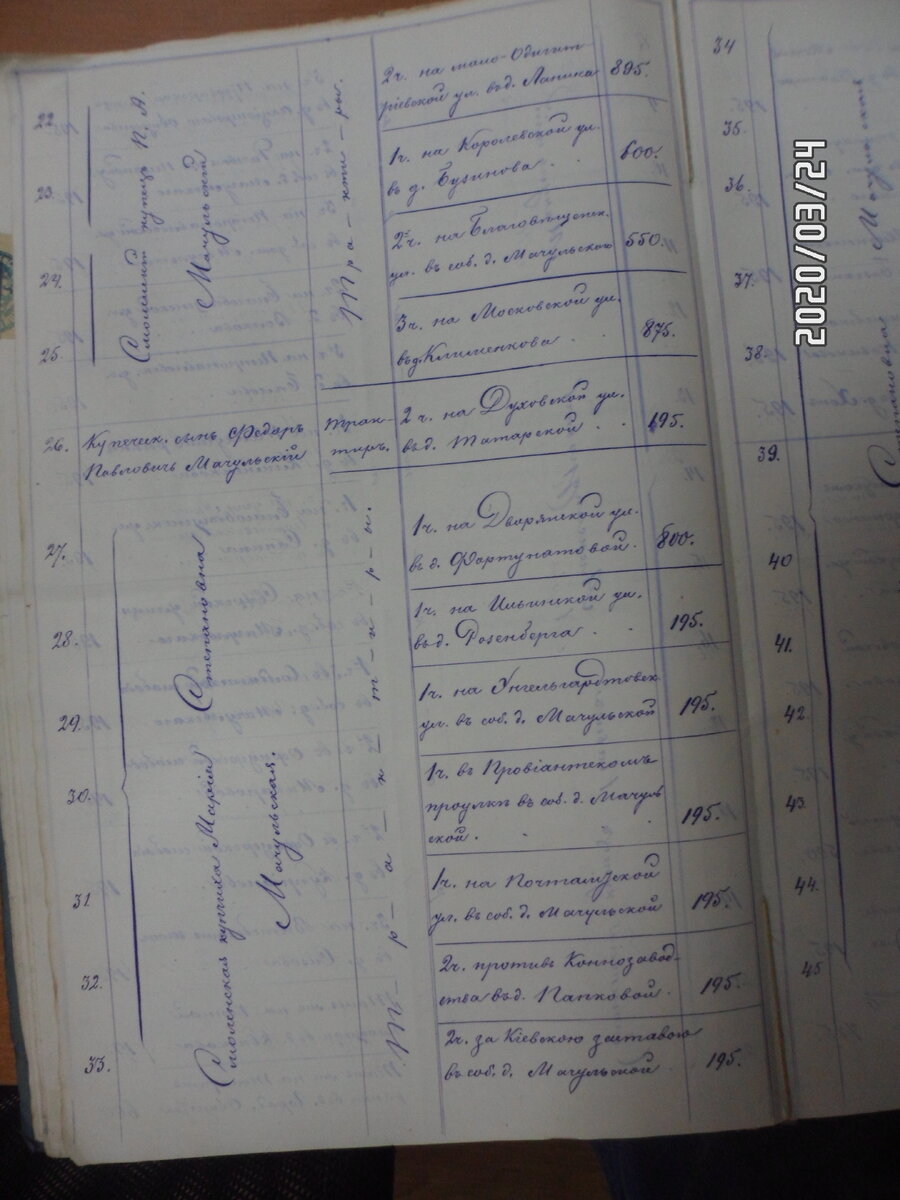 22.
23.
24.
25.
Смоленск. купецъ П. А.
Мачульскій
Тра-кти-ры.
2ч. на мало-Одигит-
ріевской ул. въ д. Лапика 895.
1ч. на Королевской ул.
въ д. Бузинова . . 600.
2ч. на Благовѣщенск.
ул. въ соб. д. Мачульскаго 550.
3ч. на Московской ул.
въ д. Клименкова . . 875.
26. Купеческ. сынъ Ѳедоръ
Павловичъ Мачульскій
Трак-
тиръ.
2 ч. на Духовской ул.
въ д. Татарской . . 195.
27.
28.
29.
30.
31.
32.
33.
Смоленская купчиха Марія Степановна
Мачульская.
Т-р-а-к-т-и-р-ы.
1ч. на Дворянской ул.
въ д. Фортунатовой. 800.
1ч. на Ильинской ул.
въ д. Розенберга . . 195.
1ч. на Энгельгардтовск
ул. въ соб. д. Мачульской 195.
1ч. въ Провіантскомъ
проулкѣ въ соб. д. Мачуль
ской. . . 195.
1ч. на Почтамтской
ул. въ соб. д. Мачульской 195.
2ч. противъ Коннозавод-
ства въ д. Папковой. 195.
2ч. за Кіевскою заставою
въ соб. д. Мачульской 195.
34
35.
36.
37.
38.
39.
40
41.
42.
43.
44.
45
2020/03/24